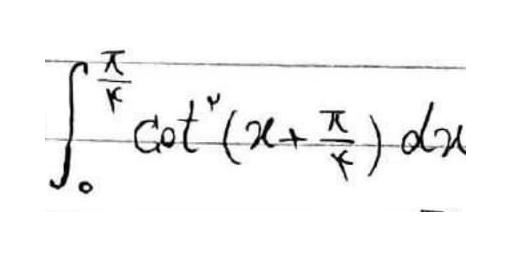 ∫_0^{π/۴} Cot^۲ (x + π/۴) dx